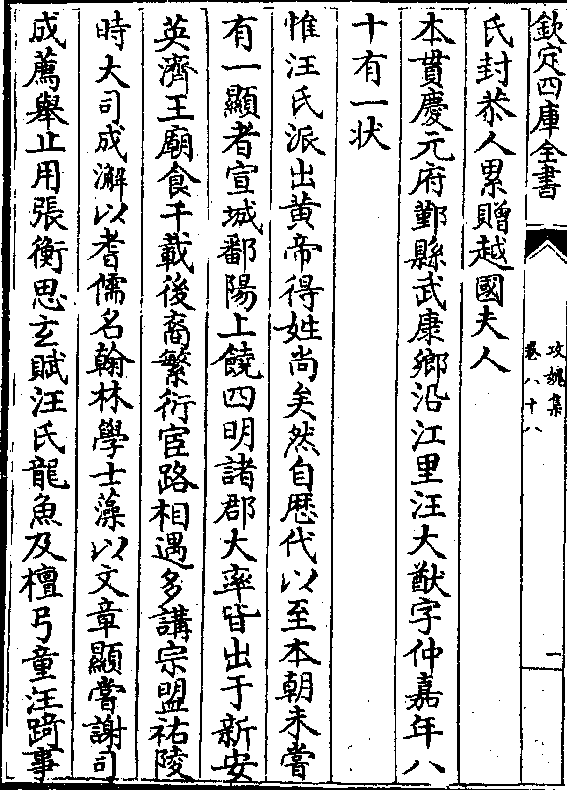 欽定四庫全書
攻媿集
卷八十八
二
氏封恭人累贈越國夫人
本貫慶元府鄞縣武康鄉沿江里汪大猷字仲嘉年八
十有一狀
惟汪氏派出黄帝得姓尚矣然自歴代以至本朝未嘗
有一顯者宣城鄱陽上饒四明諸郡大率皆出于新安
英濟王廟食千載後裔繁衍宦路相遇多講宗盟祐陵
時大司成澥以耆儒名翰林學士藻以文章顯嘗謝司
成薦舉止用張衡思玄賦汪氏龍魚及檀弓童汪踦事